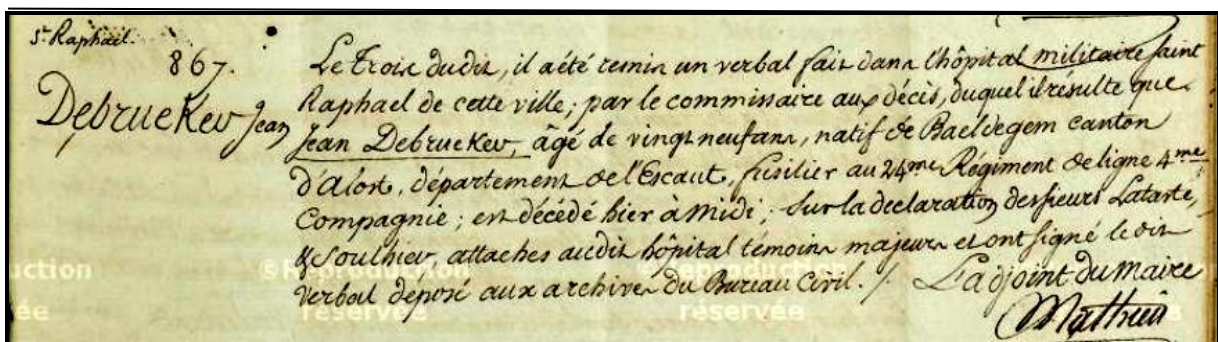 St. Raphaël.
867.
Debruekev Jean
Le Trois dudit, il a été remis un verbal fait dans l'hôpital militaire saint
Raphael de cette ville, par le commissaire aux décès, duquel il résulte que
Jean Debruekev, âgé de vingt neuf ans, natif de Baeldegem canton
d'Alost, département de l'Escaut, fusilier au 24me Régiment de ligne 4me
Compagnie; est décédé hier à midi; sur la declaration des sieurs Lataste,
& Soulhier, attachés audit hôpital témoins majeurs et ont signé le dit
verbal déposé aux archives du Bureau Civil. /. L'adjoint du maire
Mathieu
uction ©Reproduction ©Reproduction
ée réservée réservée